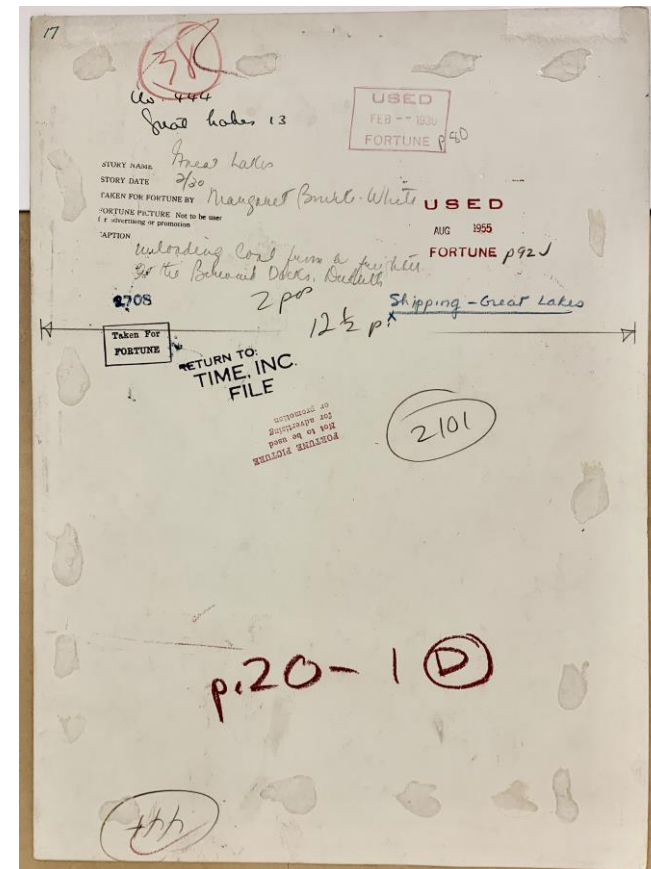 17
38
No. 444
Great Lakes 13
USED
FEB -- 1930
FORTUNE p80
STORY NAME Great Lakes
STORY DATE 2/30
TAKEN FOR FORTUNE BY Margaret Bourke-White
FORTUNE PICTURE Not to be user
f r advertising or promotion
CAPTION
Unloading Coal from a freighter
at the Docks, Duluth
USED
AUG 1955
FORTUNE p92
2708
2 pos
Shipping - Great Lakes
12 1/2 p.
Taken For
FORTUNE
RETURN TO:
TIME, INC.
FILE
FORTUNE PICTURE
Not to be used
for advertising
or promotion
2101
p.20-1 D
444